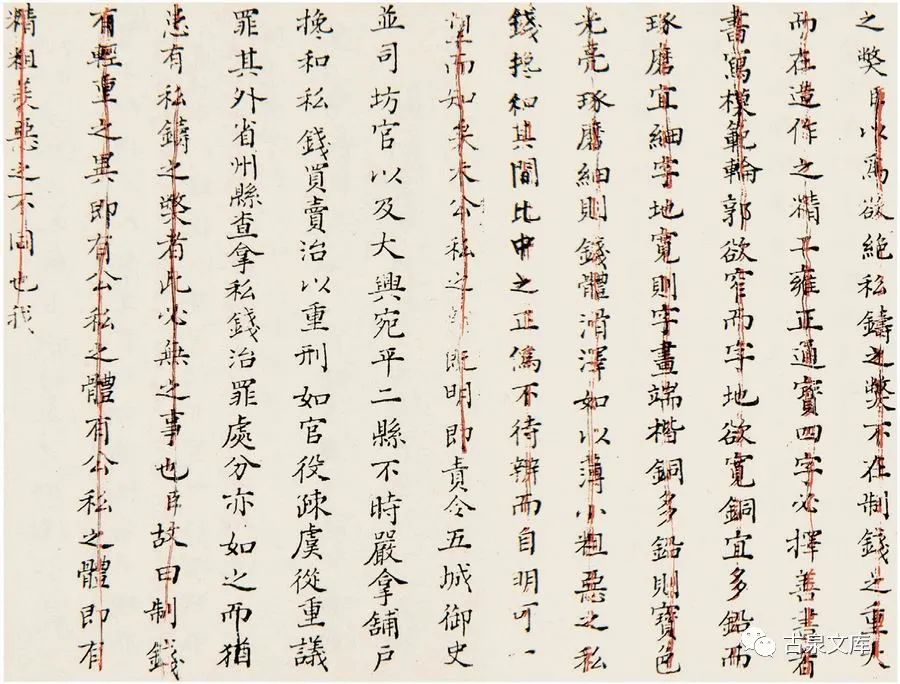 之獘臣以爲欲絶私鑄之獘不在制錢之重大
而在造作之精工雍正通寳四字必擇善書者
書寫模範輪郭欲窄而字地欲寛銅宜多鉛而
琢磨宜細字地寛則字畫端楷銅多鉛則寳色
光亮琢磨細則錢體滑澤如以薄小粗惡之私
錢攙和其間比中之正僞不待辦而自明可一
望而知矣夫公私之 既明即責令五城御史
並司坊官以及大興宛平二縣不時嚴拿舖戸
攙和私錢買賣治以重刑如官役疎虞從重議
罪其外省州縣查拿私錢治罪處分亦如之而猶
患有私鑄之獘者此必無之事也臣故曰制錢
有輕重之異即有公私之體有公私之體即有
精粗美惡之不同也我
古泉文库